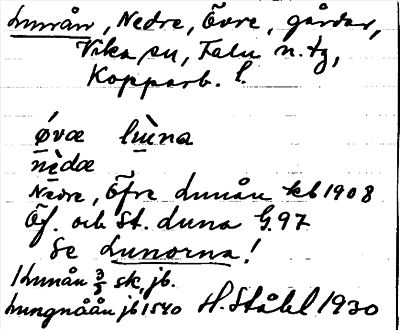 Lunån, Nedre, Övre, gårdar,
Vika sn, Falu n. tg,
Kopparb. l.
óvæ lùna
nèdæ
Nedre, Öfre Lunån kb 1908
Öf. och St. Luna G. 97
Se Lunorna!
1 Lunån 3/5 sk, jb.
Lungnåån jb 1540 H. Ståhl 1930